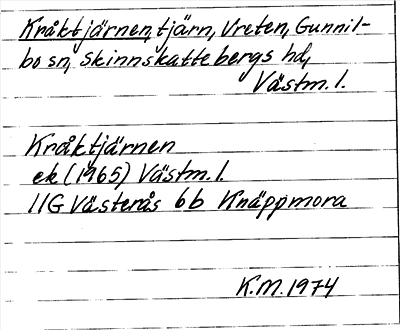 Kråktjärnen, tjärn, Vreten, Gunnil-
bo sn, Skinnskattebergs hd,
Västm. l.
Kråktjärnen
ek (1965) Västm. l.
11G Västerås 6b Knäppmora
K.M. 1974